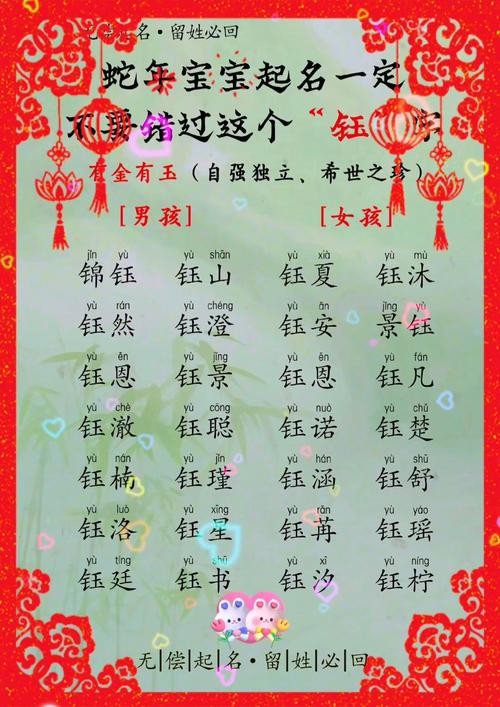 无偿起名·留姓必回
蛇年宝宝起名一定
不要错过这个“钰”字
有金有玉（自强独立、希世之珍）
[男孩] [女孩]
jǐn yù yù shān yù xià yù mù
锦钰 钰山 钰夏 钰沐
yù rán yù chéng yù ān jǐng yù
钰然 钰澄 钰安 景钰
yù ēn yù jǐng yù ēn yù fán
钰恩 钰景 钰恩 钰凡
yù chè yù cōng yù nuò yù chǔ
钰澈 钰聪 钰诺 钰楚
yù nán yù jǐn yù hán yù shū
钰楠 钰瑾 钰涵 钰舒
yù luò yù xīng yù rǎn yù yáo
钰洛 钰星 钰苒 钰瑶
yù tíng yù shū yù xī yù níng
钰廷 钰书 钰汐 钰柠
无|偿|起|名·留|姓|必|回